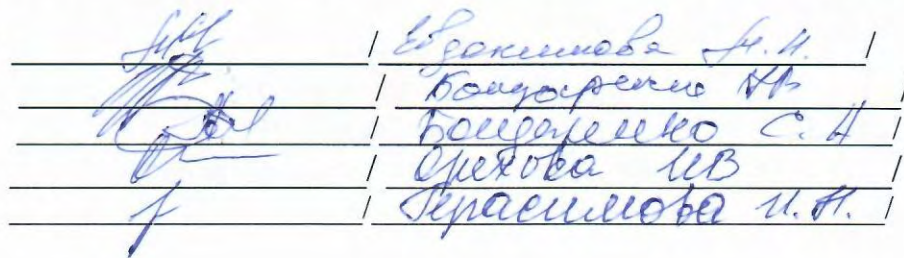 / Евдокимова Н.Н. /
/ Бондаренко НВ /
/ Бондаренко С.Н /
/ Орехова ИВ /
/ Герасимова И.Н. /